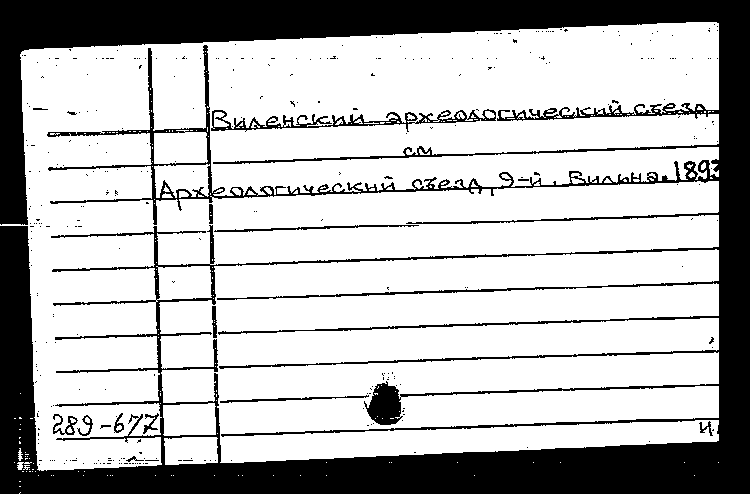 Виленский археологический съезд
см
Археологический съезд, 9-й. Вильна. 1893
289-677
И.